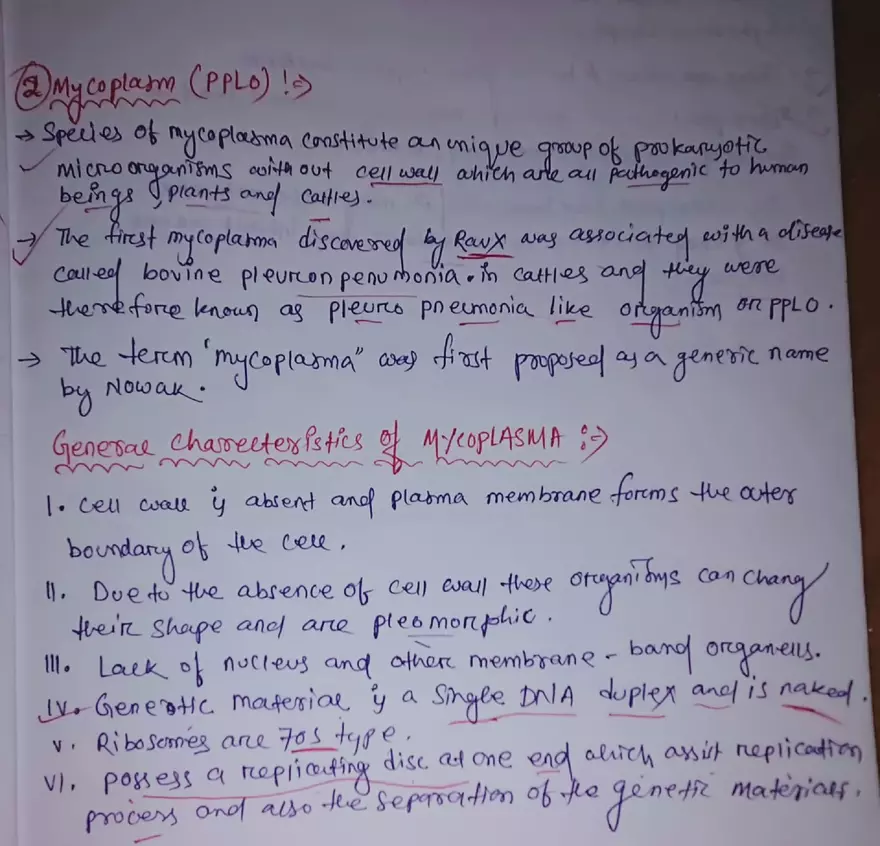 ② Mycoplasm (PPLO) :⇒
→ Species of mycoplasma constitute an unique group of prokaryotic
microorganisms with out cell wall which are all pathogenic to human
beings, plants and cattles.
→ The first mycoplasma discovered by Raux was associated with a disease
called bovine pleuron penumonia. in cattles and they were
therefore known as pleuro pneumonia like organism or PPLO.
→ The term "mycoplasma" was first proposed as a generic name
by Nowak.
General Charecteristics of MYCOPLASMA :⇒
I. Cell wall is absent and plasma membrane forms the outer
boundary of the cell.
II. Due to the absence of cell wall these organisms can chang
their shape and are pleomorphic.
III. Lack of nucleus and other membrane - band organells.
IV. Genetic material is a single DNA duplex and is naked.
V. Ribosomes are 70s type.
VI. Possess a replicating disc at one end which assist replication
process and also the separation of the genetic materials.